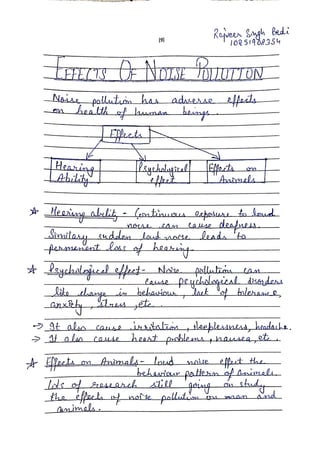 Rajveer Singh Bedi
10251988354
[9]
EFFECTS OF NOISE POLLUTION
Noise pollution has adverse effects
on health of human beings.
Effects
Hearing Ability
Psychological effect
Effects on Animals
☆ Hearing ability - Continuous exposure to loud
noise can cause deafness.
Similary sudden loud noise leads to
permenent loss of hearing.
☆ Psychological effect - Noise pollution can
cause psychological disorders
like change in behaviour, lack of tolerance,
anxity, stress, etc.
→ It also cause irritation, sleeplessness, headache.
→ It also cause heart problems, nausea, etc.
☆ Effects on Animals - loud noise effect the
behaviour pattern of Animals.
lots of research still going on study
the effects of noise pollution on man and
animals.